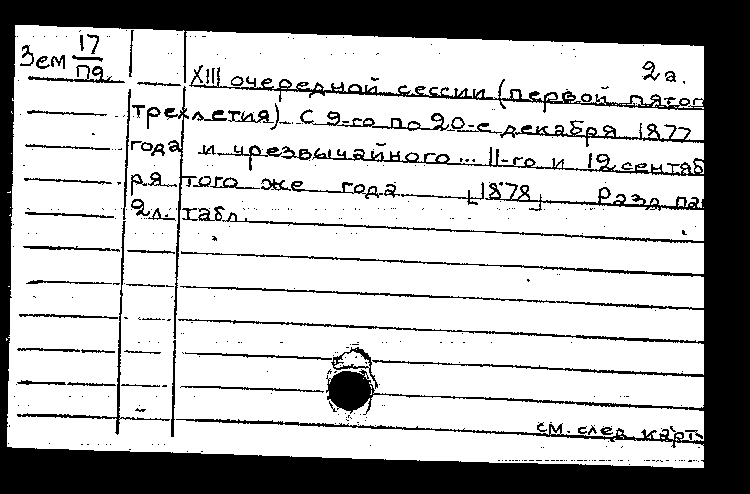 Зем 17
П9
2а.
XIII очередной сессии (первой пятог
трехлетия) С 9-го по 20-е декабря 1877
года и чрезвычайного ... 11-го и 12 сентяб
ря того же года [1878] Разд паг
2л. табл.
см. след карт